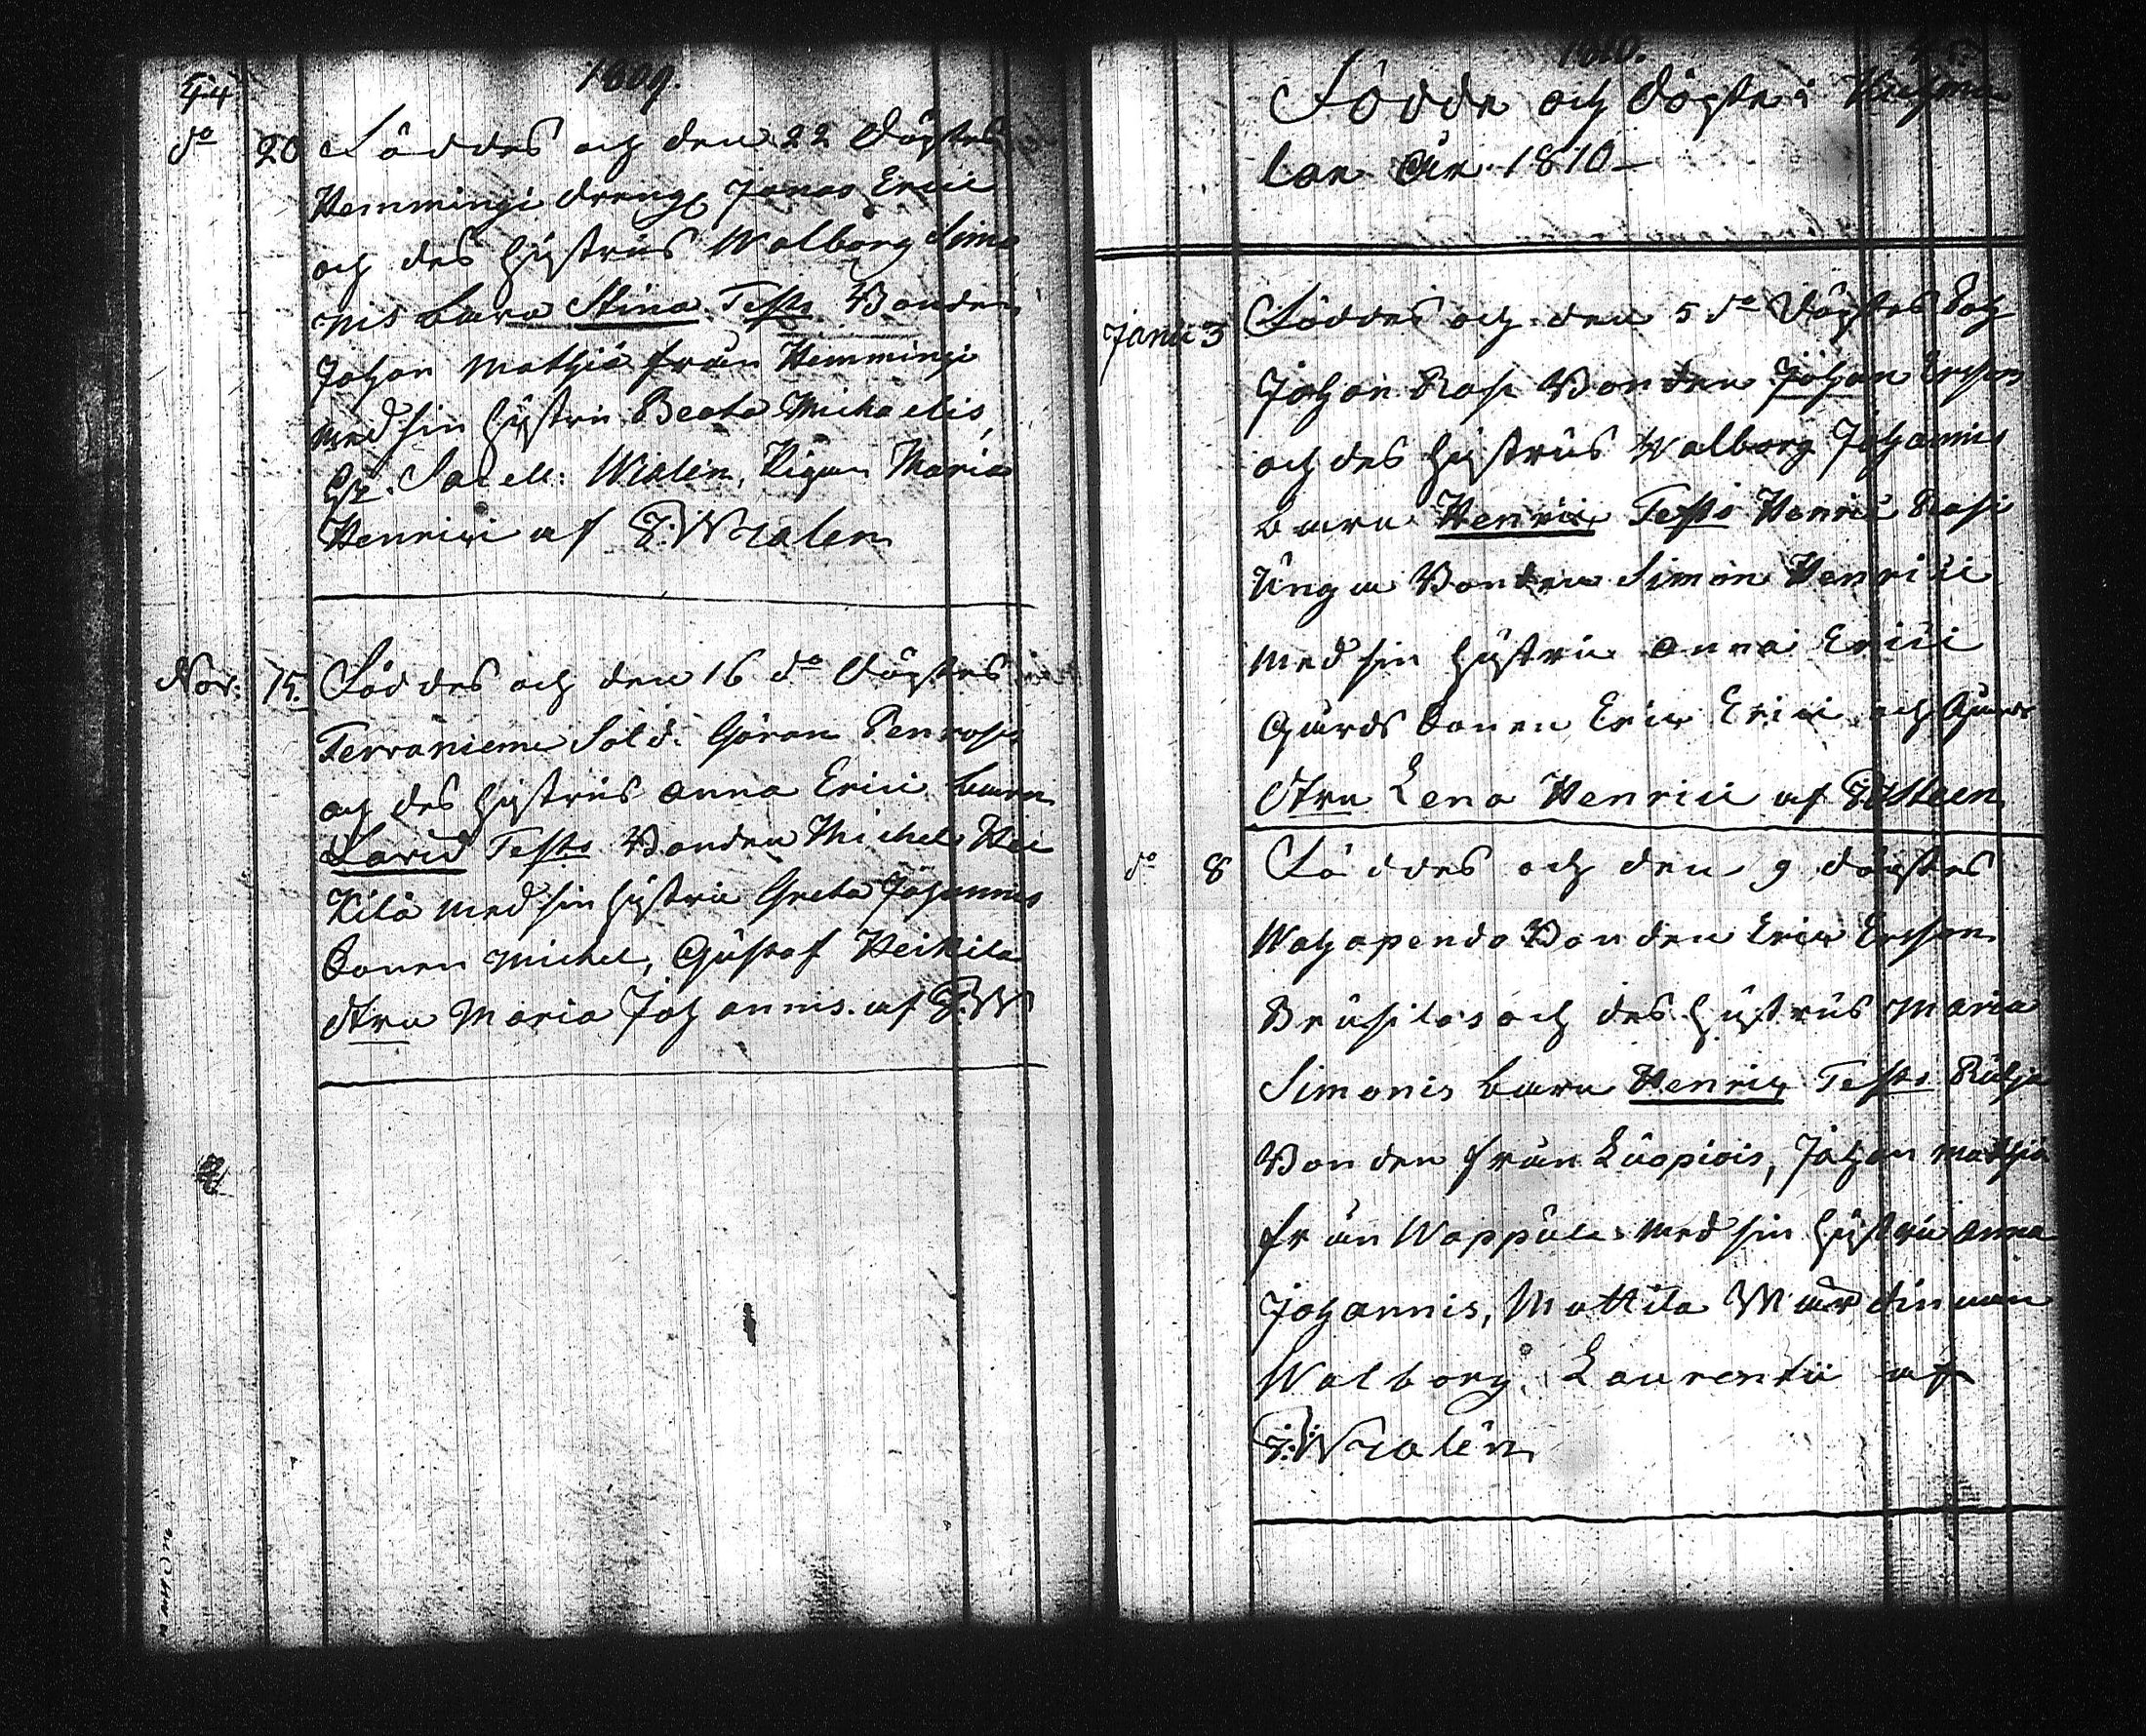 44
1809.
do 20 Föddes och den 22 döptes
Hemmingi dreng Jonas Erici
och des hustrus Walborg Simo
nis barn Stina Tests Bonden
Johan Mathiæ från Hemmingi
med sin hustru Beata Michaelis,
Sacell: Wialen, Pigan Maria
Henrici af J: Wialen
Nov: 15. Föddes och den 16 do döptes
Terraniemi Sold. Göran Penross
och des hustrus Anna Erici barn
David Tests Bonden Michel Hei
kilä med sin hustru Greta Johannis
Sonen Michel, Gustaf Heikilä
dtru Maria Johannis. af J: W
1810.
Födde och döpte i
lax År 1810
Janu: 3 Föddes och den 5 do döptes
Johan Rasi Bonden Johan Ericson
och des hustrus Walborg Johannis
barn Henric Tests Henric Rasi
Unga Bonden Simon Henrici
med sin hustru Anna Erici
Gårds Sonen Eric Erici och Gårds
dtru Lena Henrici af
do 8 Föddes och den 9 döptes
Bonden Eric Ericson
och des hustrus Maria
Simonis barn Henric Tests
Bonden från Luopiois, Johan Mathiæ
från Wappula med sin hustru Anna
Johannis, Mattila Wärdinnan
Walborg Laurentii af
J: Wialen